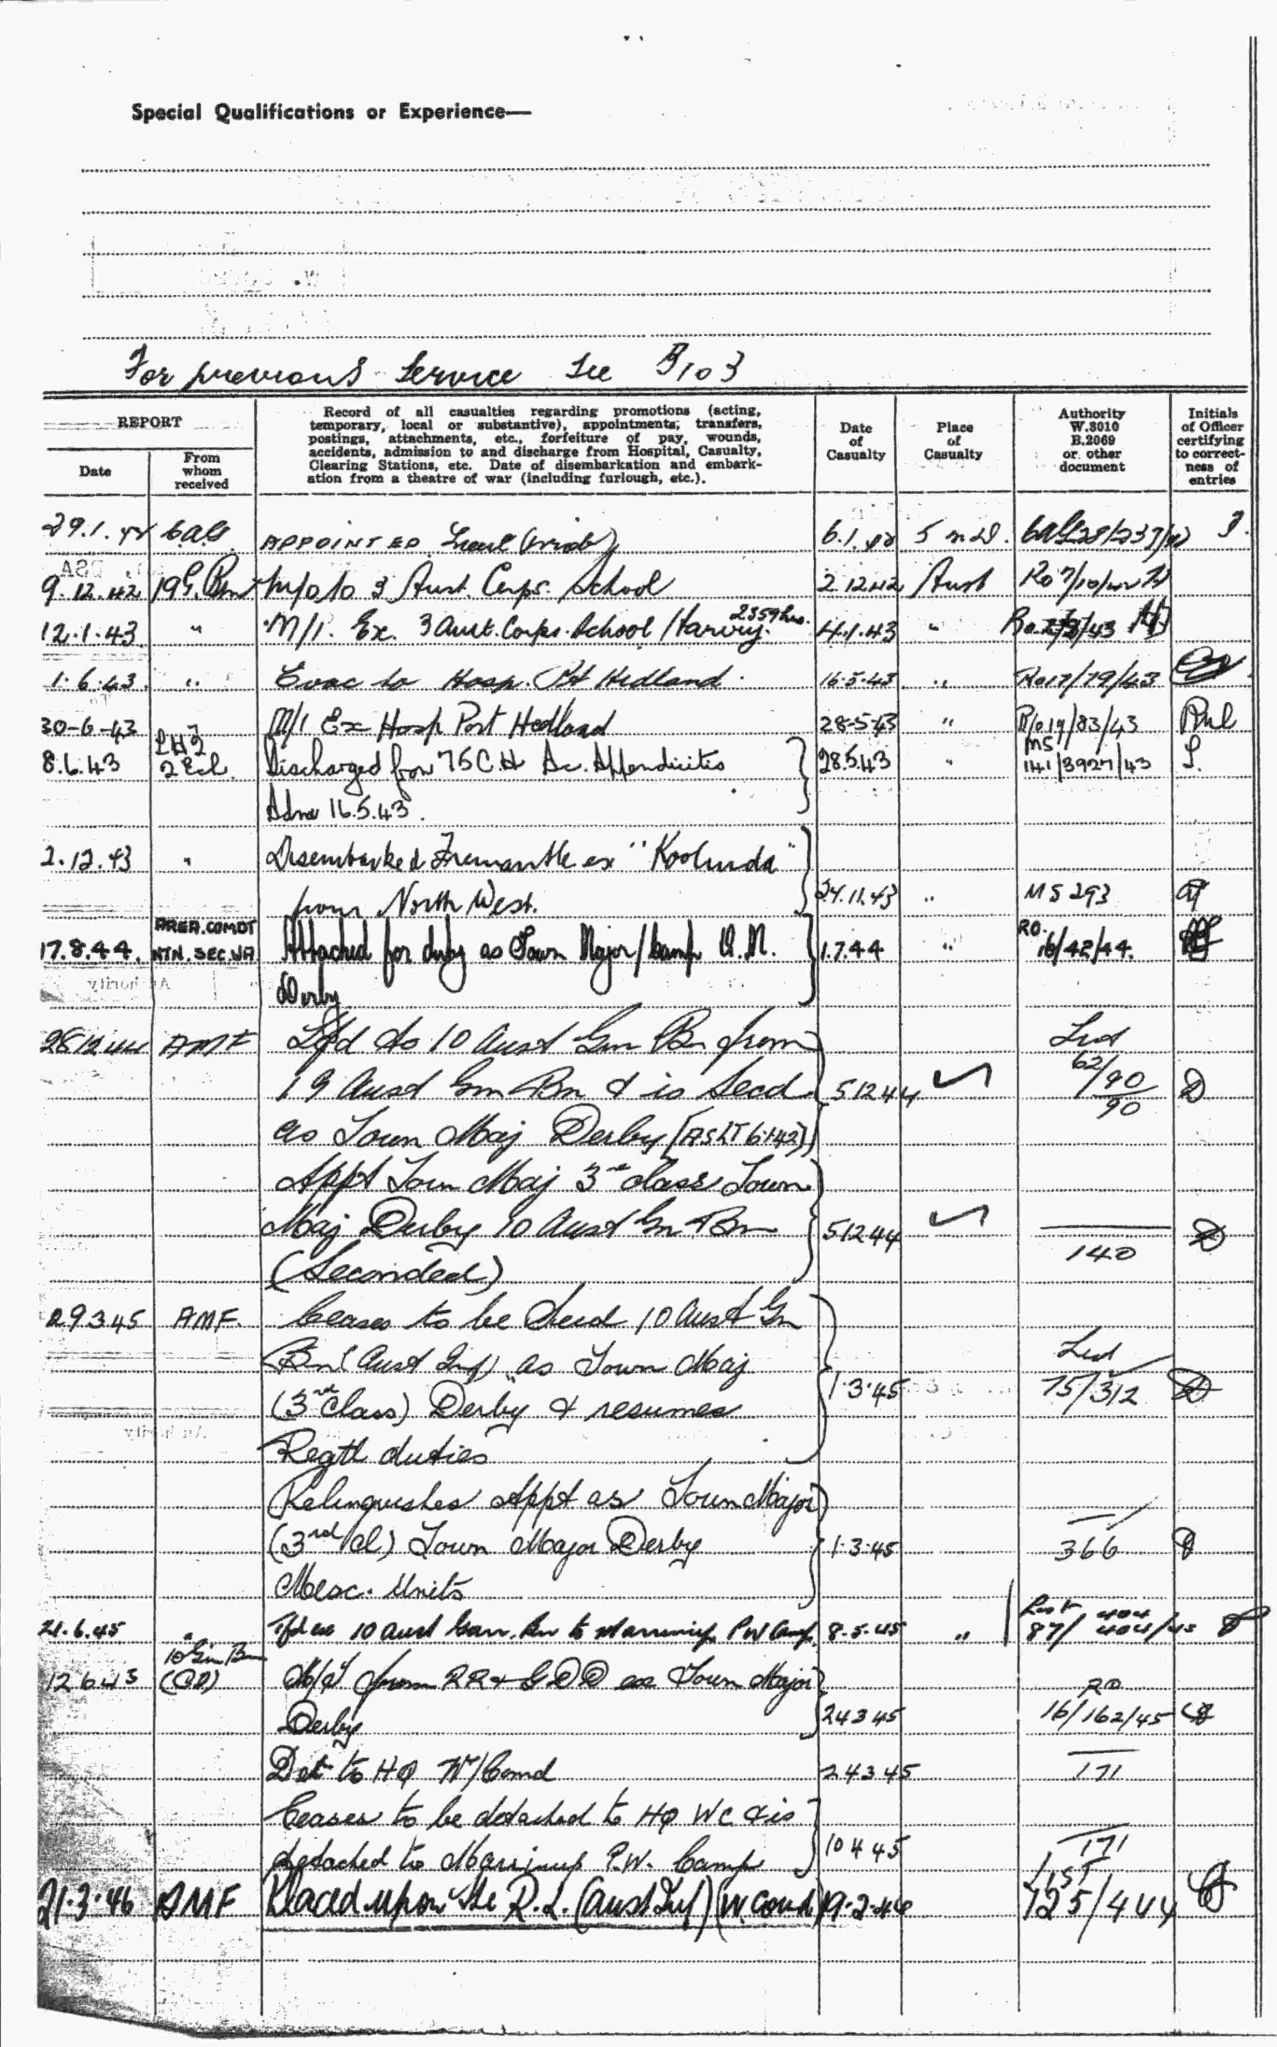 Special Qualifications or Experience—
For previous Service See B/103
REPORT
Date
From whom received
Record of all casualties regarding promotions (acting,
temporary, local or substantive), appointments, transfers,
postings, attachments, etc., forfeiture of pay, wounds,
accidents, admission to and discharge from Hospital, Casualty,
Clearing Stations, etc. Date of disembarkation and embark-
ation from a theatre of war (including furlough, etc.).
Date of Casualty
Place of Casualty
Authority W.3010 B.2069 or other document
Initials of Officer certifying to correct-ness of entries
29.1.42 APPOINTED Lieut 6.1.42 5 M.D.
9.12.42 19 G. Bn M/O to 3 Aust. Corps. School 2.12.42 Aust RO 7/10/42
2359 hrs.
12.1.43 " M/I. Ex. 3 Aust. Corps. School /Harvey. 4.1.43 "
1.6.43 " Evac to Hosp. Pt Hedland. 16.5.43 " Ro 17/79/43
30-6-43 M/I Ex Hosp Port Hedland 28-5-43 " R/o 19/83/43
8.6.43 2 Ech. Discharged from 75 C.H Ac. Appendicitis 28.5.43 " MS 141/3927/43
Adm 16.5.43.
2.12.43 " Disembarked Fremantle ex "Koolinda"
from North West. 24.11.43 " MS 293
AREA.COMDT RO.
17.8.44. NTN.SEC.WA Attached for duty as Town Major/Camp Q.M. 1.7.44 " 16/42/44.
Derby
28 12 44 AMF Tfd to 10 Aust Gn Bn from List
19 Aust Gn Bn & is Secd 5 12 44 62/90/90
as Town Maj Derby [AS LT 6 1 42]
Appt Town Maj 3rd class Town
Maj Derby 10 Aust Gn Bn 5 12 44 140
(Seconded)
29 3 45 AMF. Ceases to be Secd 10 Aust Gn
Bn (Aust Inf) as Town Maj List
(3rd Class) Derby & resumes 1.3.45 75/312
Regtl duties
Relinquishes Appt as Town Major
(3rd Cl) Town Major Derby 1.3.45 366
Misc. Units
21.6.45 " Tfd ex 10 Aust Garr. Bn to Marrinup P W Camp. 8.5.45 " List 87/404/45
10 Gn Bn
12 6 45 M/I from RR & GDD ex Town Major RO
Derby 24 3 45 16/162/45
Det to HQ W/Comd 24 3 45 171
Ceases to be detached to HQ WC & is
detached to Marrinup P.W. Camp 10 4 45 171
21.3.46 AMF Placed upon the R.L. (Aust Inf) (W. Comd.) 19.2.46 LIST 125/444